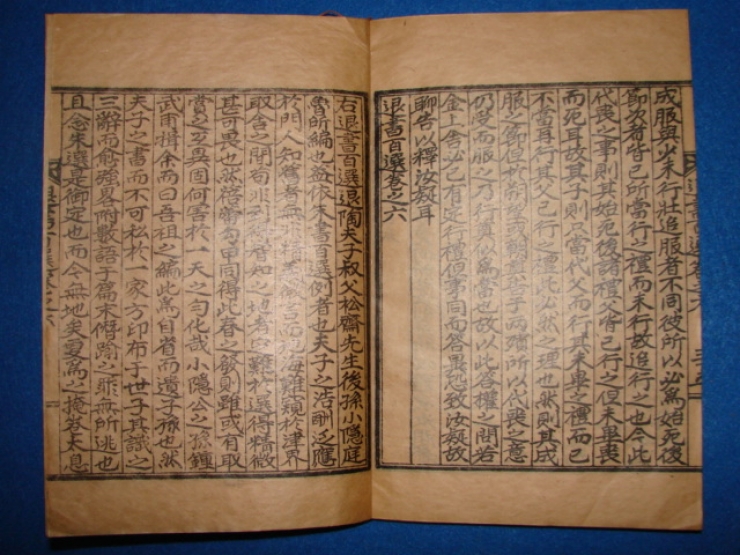 成服與少未行壯追服者不同彼所以必爲始死後
節次者皆已所當行之禮而未行故追行之也今此
代喪之事則其始死後諸禮父皆已行之但未畢喪
而死耳故其子則只當代父而行其未畢之禮而已
不當再行其父已行之禮此必然之理也然則其成
服之節但於朔望或朝奠告子兩殯所以代喪之意
仍受而服之乃行奠似爲當也故以此答權之問若
金上舍必已有定行禮但事同而答異恐致汝疑故
聊告以釋汝疑耳
退書百選卷之六
右退書百選退陶夫子叔父松齋先生後孫小隱庭
魯所編也蓋依朱書百選例者也夫子之浩酬泛應
於門人知舊者無非精 微言而 海難窺於津界
取舍之間苟非到 智知之地者 難於選得精微
甚可畏也然 審勾甲同得此春之發則雖或有取
當之至異固何害於一天之勻化哉小隱公之孫鍾
武甫揖余而曰吾祖之編此爲自省而遺子孫也然
夫子之書而不可私於一家方印布于世子其識之
三辭而愈強畧附數語于篇末僭踰之罪無所逃也
且念朱選是御定也而今無地矣 爲之掩 太息
退書百選卷之六